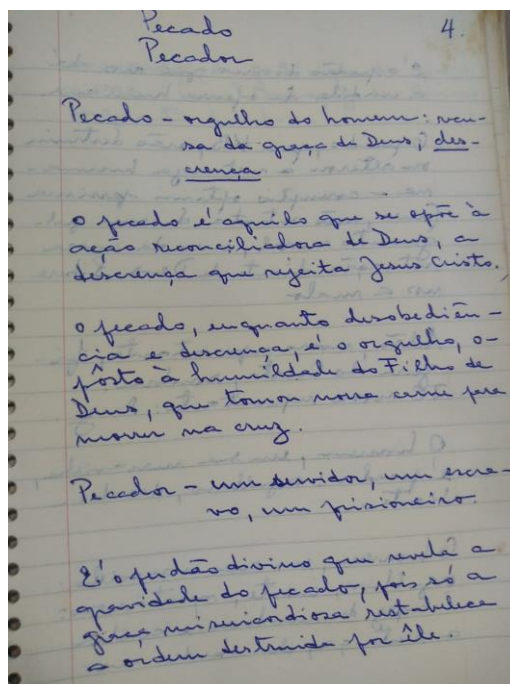 Pecado
4.
Pecador
Pecado - orgulho do homem: recu-
sa da graça de Deus, des-
crença
O pecado é aquilo que se opõe à
ação reconciliadora de Deus, a
descrença que rejeita Jesus Cristo.
O pecado, enquanto desobediên-
cia e descrença, é o orgulho, o-
pôsto à humildade do Filho de
Deus, que tomou nossa carne para
morrer na cruz.
Pecador - um servidor, um escra-
vo, um prisioneiro.
É o perdão divino que revela a
gravidade do pecado, pois só a
graça misericordiosa restabelece
a ordem destruida por êle.